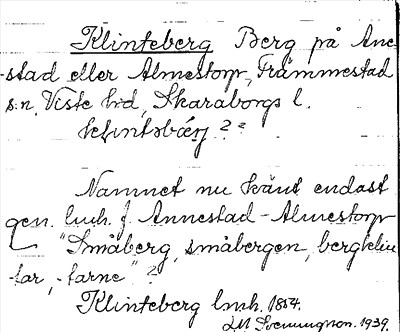 Klinteberg Berg på Anne-
stad eller Almestorp, Främmestad
s:n, Viste hd, Skaraborgs l.
Namnet nu känt endast
gen. lmh. f. Annestad-Almestorp
"Småberg, småbergen, bergklin-
tar, -tarne"?
Klinteberg lmh. 1854.
1939.